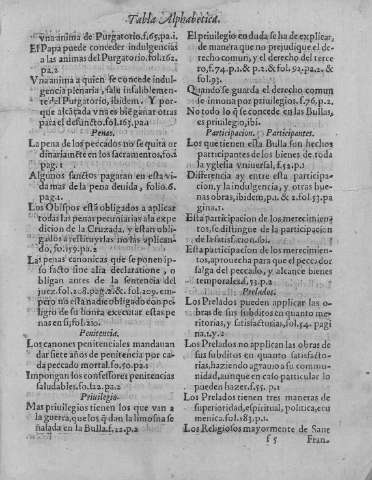 Tabla Alphabetica.
vna anima de Purgatorio. f. 165. pa. 1.
El Papa puede conceder indulgencias
a las animas del Purgatorio. fol. 162.
pa. 2
Vna anima a quien se concede indul-
gencia plenaria, sale infaliblemen-
te del Purgatorio, ibidem. Y por-
que alcãçada vna es biẽ ganar otras
para el defuncto. fol. 165. pa. 1
Penas.
La pena de los peccados no se quita or
dinariamẽte en los sacramentos, fo. 2
pag. 1.
Algunos sanctos pagaran en esta vi-
da mas de la pena deuida, folio. 6.
pag. 1.
Los Obispos estã obligados a aplicar
todas las penas pecuniarias a la expe
dicion de la Cruzada, y estan obli-
gados a restituyrlas no las aplican-
do, fo. 119. pa. 2
Las penas canonicas que se ponen ip-
so facto sine alia declaratione, o
bligan antes de la sentencia del
juez. fol. 208. pag. 2. & fol. 209. em-
pero no esta nadie obligado con pe-
ligro de su honra executar estas pe
nas en si, fol. 210.
Penitencia.
Los canones penitenciales mandauan
dar siete años de penitencia por ca-
da peccado mortal. fo. 50. pa. 2
Impongan los confessores penitencias
saludables. fo. 122. pa. 2
Priuilegio.
Mas priuilegios tienen los que van a
la guerra, que los q̃ dan la limosna se
ñalada en la Bulla. f. 22. p. 2
El priuilegio en duda se ha de explicar,
de manera que no prejudique el de-
recho comun, y el derecho del terce
ro, f. 74. p. 1. & p. 2. & fol. 92. pa. 2, &
fol. 93.
Quando se guarda el derecho comun
se innoua por priuilegios. f. 76. p. 2.
No todo lo q̃ se concede en las Bullas,
es priuilegio, ibi.
Participacion. Participantes.
Los que tienen esta Bulla son hechos
participantes de los bienes de toda
la yglesia vniuersal, f. 52. p. 1
Differencia ay entre esta participa-
cion, y la indulgencia, y otras bue-
nas obras, ibidem, p. 1. & 2. fol. 53. pa
gina. 1.
Esta participacion de los merecimien
tos, se distingue de la participacion
de la satisfacion. ibi.
Esta participacion de los merecimien-
tos, aprouecha para que el peccador
salga del peccado, y alcance bienes
temporales. d. 53. p. 2
Prelados.
Los Prelados pueden applicar las o-
bras de sus subditos en quanto me-
ritorias, y satisfactorias, fol. 54. pagi
na. 1. y. 2.
Los Prelados no applican las obras de
sus subditos en quanto satisfacto-
rias, haziendo agrauio a su communi-
dad, aunque en caso particular lo
pueden hazer. f. 55. p. 1
Los Prelados tienen tres maneras de
superioridad, espiritual, politica, eco
menica. fol. 183. p. 1.
Los Religiosos mayormente de Sanc
f 5 Fran-